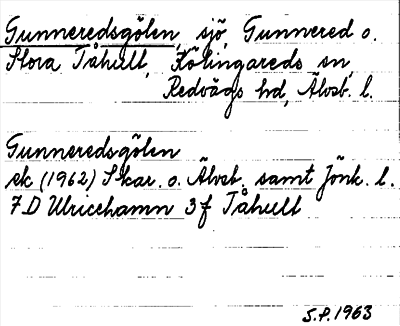 Gunneredsgölen, sjö, Gunnered o.
Stora Tåhult, Kölingareds sn,
Redvägs hd, Älvsb. l.
Gunneredsgölen
ek (1962) Skar. o. Älvsb. samt Jönk. l.
7D Ulricehamn 3f Tåhult
S.P. 1963